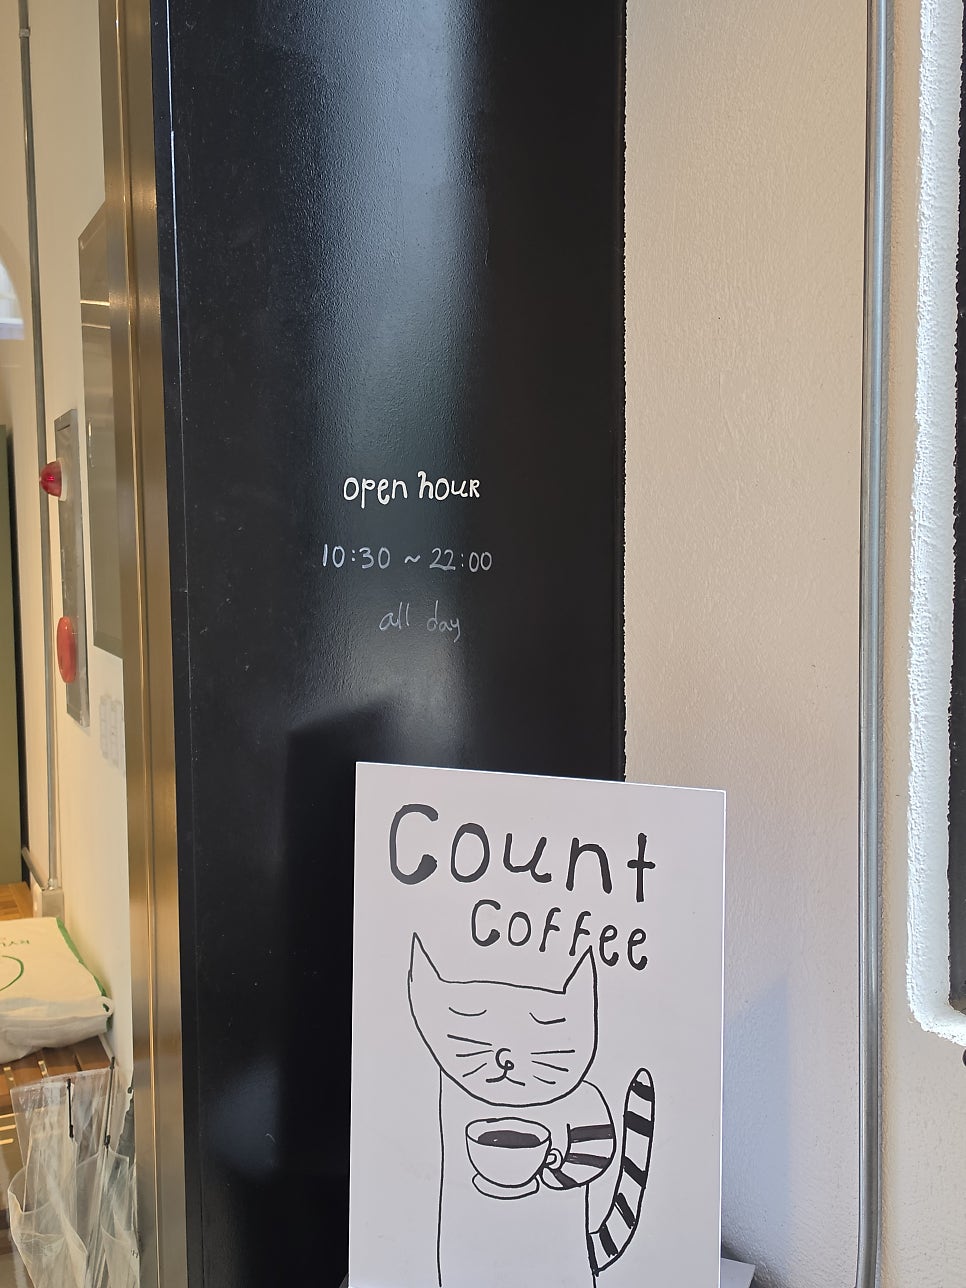 open hour
10:30 ~ 22:00
all day
Count
Coffee